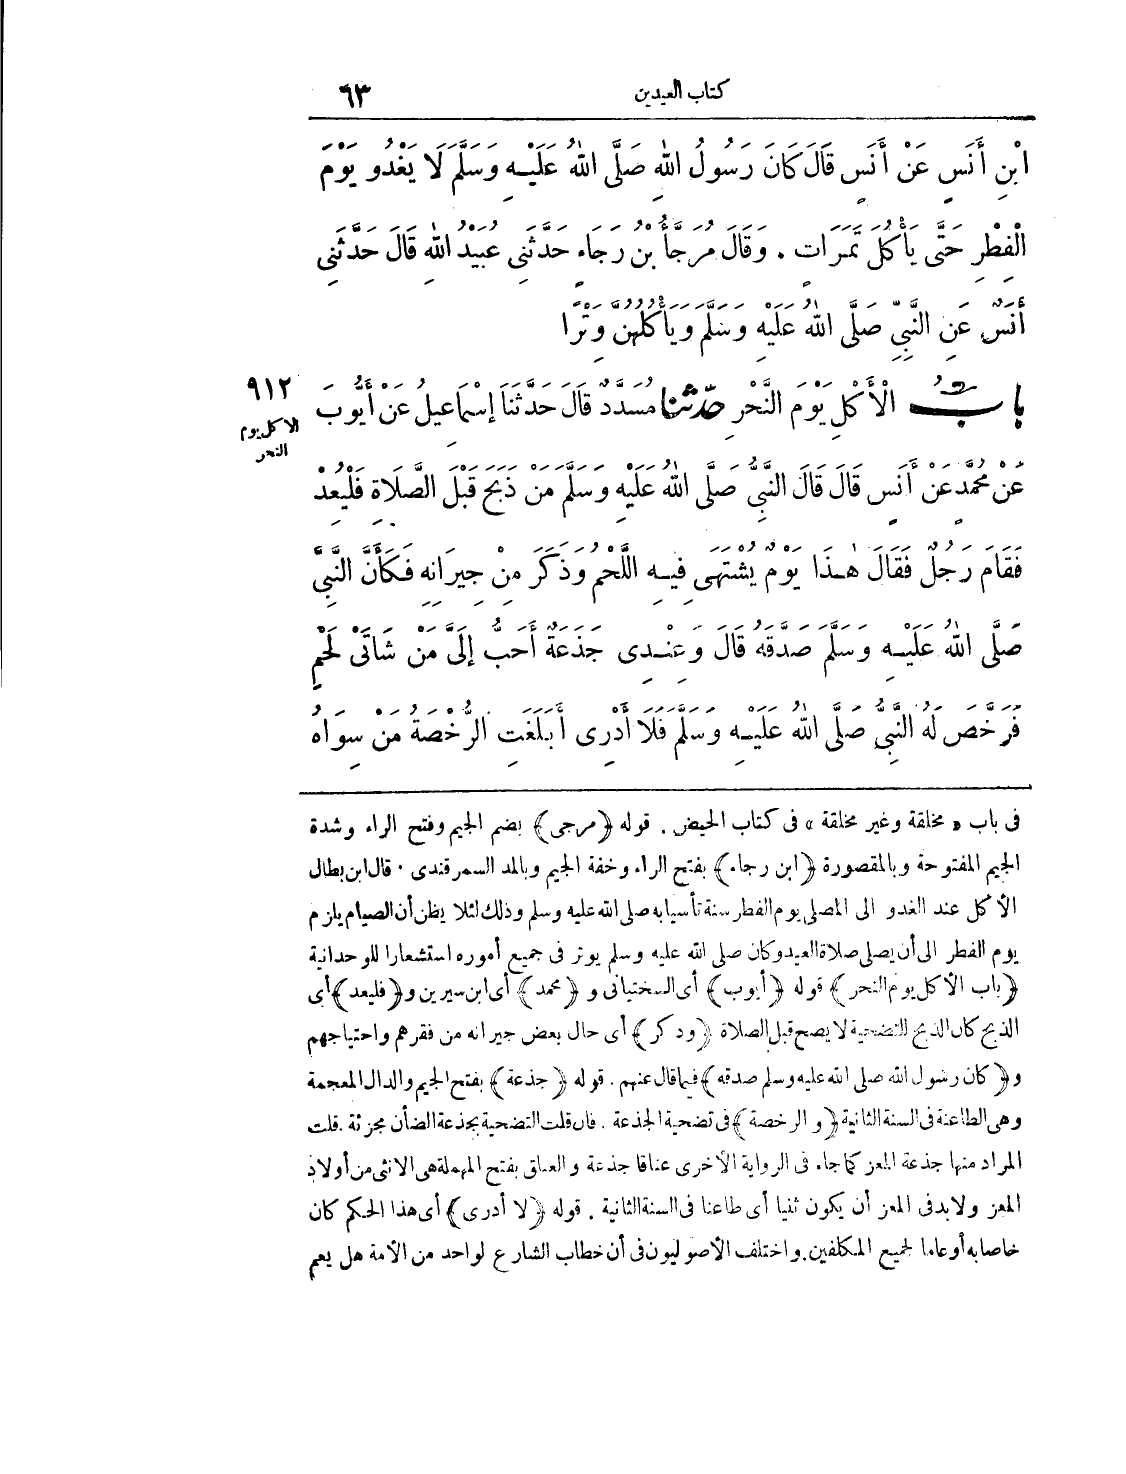 كتاب العيدين ٦٣
ابْنِ أَنَسٍ عَنْ أَنَسٍ قَالَ كَانَ رَسُولُ اللّٰهِ صَلَّى اللّٰهُ عَلَيْهِ وَسَلَّمَ لَا يَغْدُو يَوْمَ
الْفِطْرِ حَتَّى يَأْكُلَ تَمَرَاتٍ . وَقَالَ مُرَجَّأُ بْنُ رَجَاءٍ حَدَّثَنِي عُبَيْدُ اللّٰهِ قَالَ حَدَّثَنِي
أَنَسٌ عَنِ النَّبِيِّ صَلَّى اللّٰهُ عَلَيْهِ وَسَلَّمَ وَيَأْكُلُهُنَّ وِتْرًا
بابُ الْأَكْلِ يَوْمَ النَّحْرِ حَدَّثَنَا مُسَدَّدٌ قَالَ حَدَّثَنَا إِسْمَاعِيلُ عَنْ أَيُّوبَ
٩١٢
الاكل يوم
النحر
عَنْ مُحَمَّدٍ عَنْ أَنَسٍ قَالَ قَالَ النَّبِيُّ صَلَّى اللّٰهُ عَلَيْهِ وَسَلَّمَ مَنْ ذَبَحَ قَبْلَ الصَّلَاةِ فَلْيُعِدْ
فَقَامَ رَجُلٌ فَقَالَ هٰذَا يَوْمٌ يُشْتَهَى فِيهِ اللَّحْمُ وَذَكَرَ مِنْ جِيرَانِهِ فَكَأَنَّ النَّبِيَّ
صَلَّى اللّٰهُ عَلَيْهِ وَسَلَّمَ صَدَّقَهُ قَالَ وَعِنْدِي جَذَعَةٌ أَحَبُّ إِلَيَّ مِنْ شَاتَيْ لَحْمٍ
فَرَخَّصَ لَهُ النَّبِيُّ صَلَّى اللّٰهُ عَلَيْهِ وَسَلَّمَ فَلَا أَدْرِي أَبَلَغَتِ الرُّخْصَةُ مَنْ سِوَاهُ
فى باب « مخلقة وغير مخلقة » فى كتاب الحيض . قوله ﴿مرجى﴾ بضم الجيم وفتح الراء وشدة
الجيم المفتوحة وبالمقصورة ﴿ابن رجاء﴾ بفتح الراء وخفة الجيم وبالمد السمرقندى . قال ابن بطال
الأكل عند الغدو الى المصلى يوم الفطر سنة تأسيا به صلى الله عليه وسلم وذلك لئلا يظن أن الصيام يلزم
يوم الفطر الى أن يصلى صلاة العيد وكان صلى الله عليه وسلم يوتر فى جميع أموره استشعارا للوحدانية
﴿باب الأكل يوم النحر﴾ قوله ﴿أيوب﴾ أى السختيانى و﴿محمد﴾ أى ابن سيرين و﴿فليعد﴾ أى
الذبح كان الذبح للتضحية لا يصح قبل الصلاة ﴿وذكر﴾ أى حال بعض جيرانه من فقرهم واحتياجهم
و﴿كان رسول الله صلى الله عليه وسلم صدقه﴾ فيما قال عنهم . قوله ﴿جذعة﴾ بفتح الجيم والذال المعجمة
وهى الطاعنة فى السنة الثانية ﴿و الرخصة﴾ فى تضحية الجذعة . فان قلت التضحية بجذعة الضأن مجزئة . قلت
المراد منها جذعة المعز كما جاء فى الرواية الأخرى عناقا جذعة والعناق بفتح المهملة هى الانثى من أولاد
المعز ولا بد فى المعز أن يكون ثنيا أى طاعنا فى السنة الثانية . قوله ﴿لا أدرى﴾ أى هذا الحكم كان
خاصا به أو عاما لجميع المكلفين . واختلف الأصوليون فى أن خطاب الشارع لواحد من الأمة هل يعم